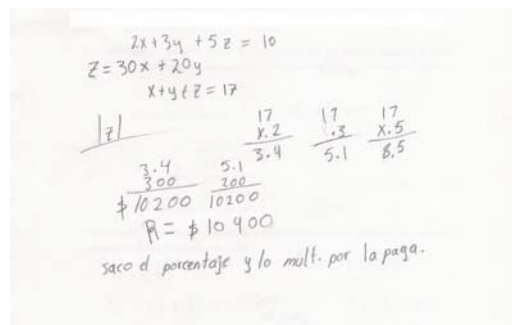 2x+3y +5z = 10
z=30x +20y
x+y+z=17
|z|
17 17 17
x.2 .3 x.5
3.4 5.1 8.5
3.4 5.1
300 200
$10200 10200
R= $10400
saco el porcentaje y lo mult. por la paga.